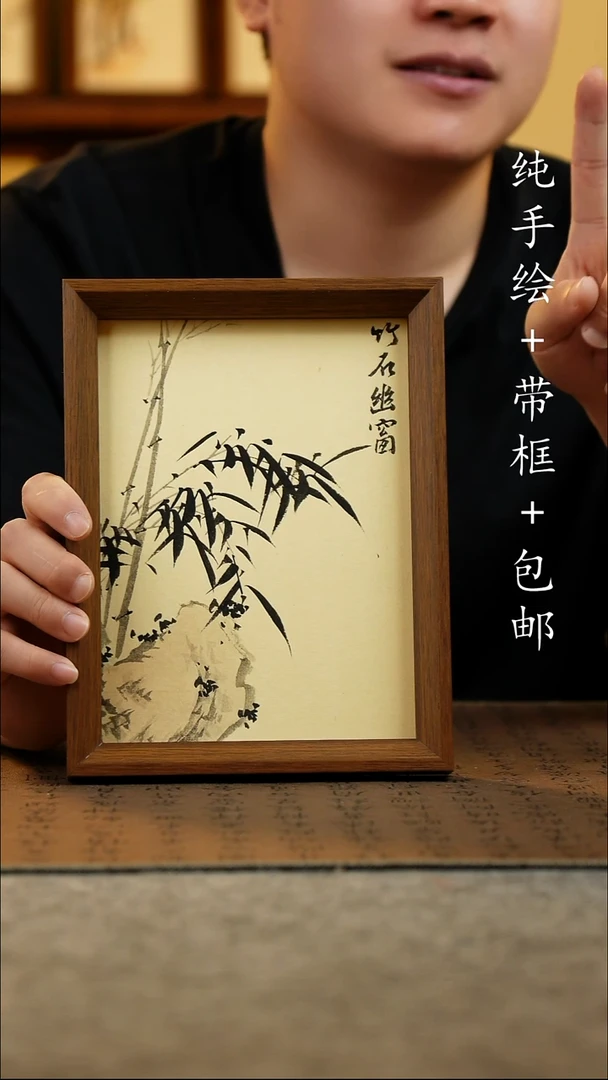 纯手绘+带框+包邮
竹石幽窗